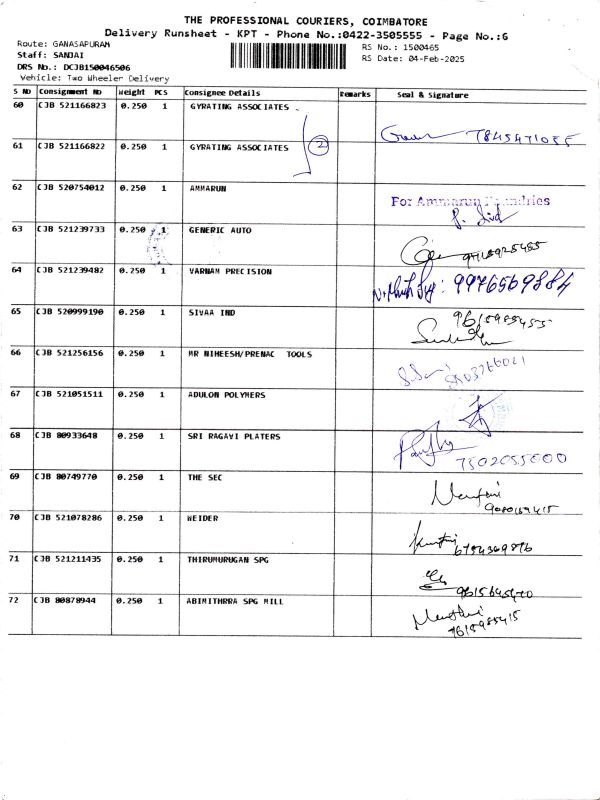 THE PROFESSIONAL COURIERS, COIMBATORE
Delivery Runsheet - KPT - Phone No.:0422-3505555 - Page No.:6
Route: GANASAPURAM
RS No.: 1500465
Staff: SANJAI
RS Date: 04-Feb-2025
DRS No.: DCJB150046506
Vehicle: Two Wheeler Delivery
S NO Consignment NO Weight PCS Consignee Details Remarks Seal & Signature
60 CJB 521166823 0.250 1 GYRATING ASSOCIATES
2
7845471055
61 CJB 521166822 0.250 1 GYRATING ASSOCIATES
62 CJB 520754012 0.250 1 AMMARUN
For Ammarun Foundries
63 CJB 521239733 0.250 1 GENERIC AUTO
64 CJB 521239482 0.250 1 VARNAM PRECISION
9976569884
65 CJB 520999190 0.250 1 SIVAA IND
66 CJB 521256156 0.250 1 MR NIHEESH/PRENAC TOOLS
67 CJB 521051511 0.250 1 ADULON POLYMERS
68 CJB 80933648 0.250 1 SRI RAGAVI PLATERS
7502055000
69 CJB 80749770 0.250 1 THE SEC
70 CJB 521078286 0.250 1 WEIDER
71 CJB 521211435 0.250 1 THIRUMURUGAN SPG
72 CJB 80878944 0.250 1 ABIMITHRRA SPG MILL